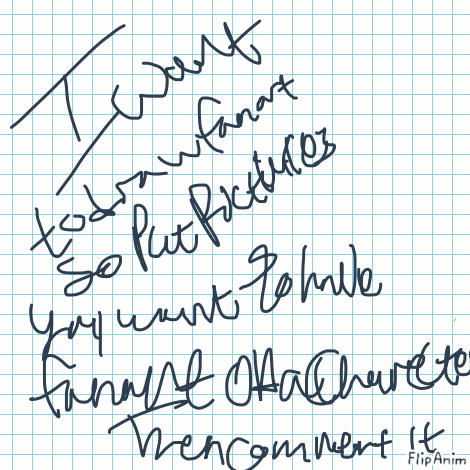 I want
to draw fanart
so Put Pictures
you want to have
fanart of a Charecte
Then comment it
FlipAnim